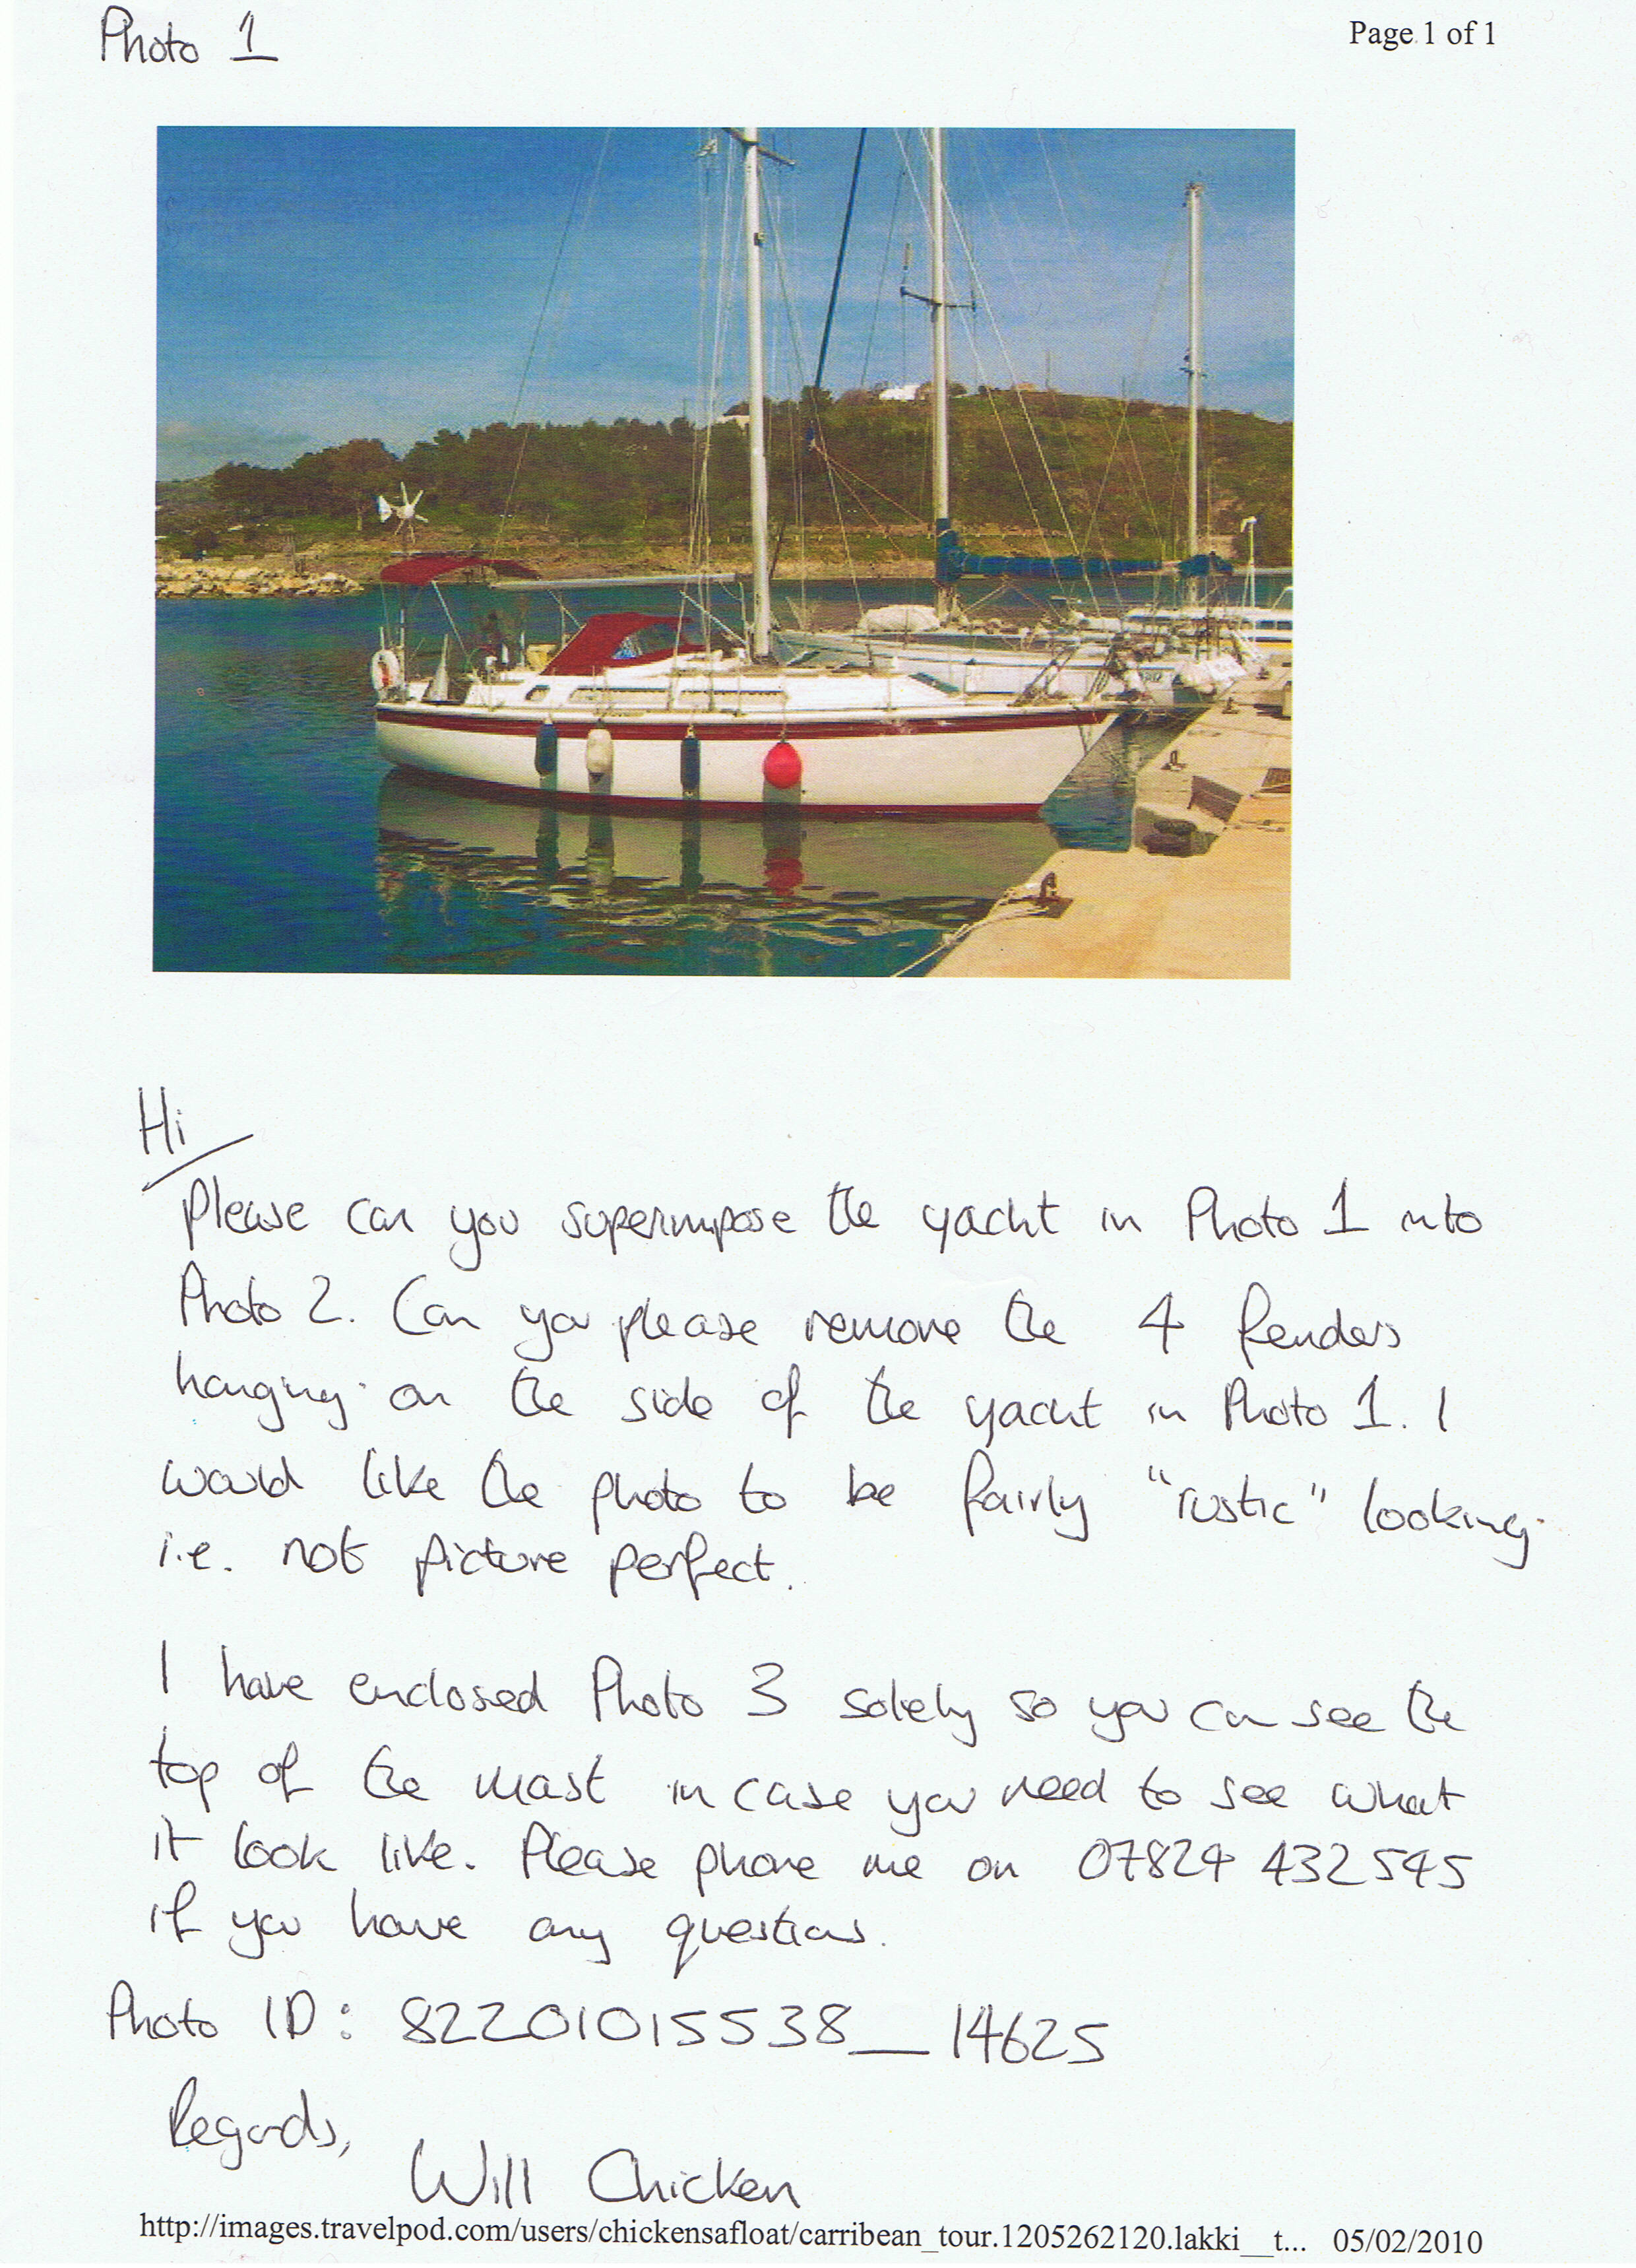 Photo 1
Page 1 of 1
Hi
Please can you superimpose the yacht in Photo 1 into
Photo 2. Can you please remove the 4 fenders
hanging on the side of the yacht in Photo 1. I
would like the photo to be fairly "rustic" looking
i.e. not picture perfect.
I have enclosed Photo 3 solely so you can see the
top of the mast in case you need to see what
it look like. Please phone me on 07824 432545
if you have any questions.
Photo ID: 82201015538__14625
Regards,
Will Chicken
http://images.travelpod.com/users/chickensafloat/carribean_tour.1205262120.lakki__t... 05/02/2010